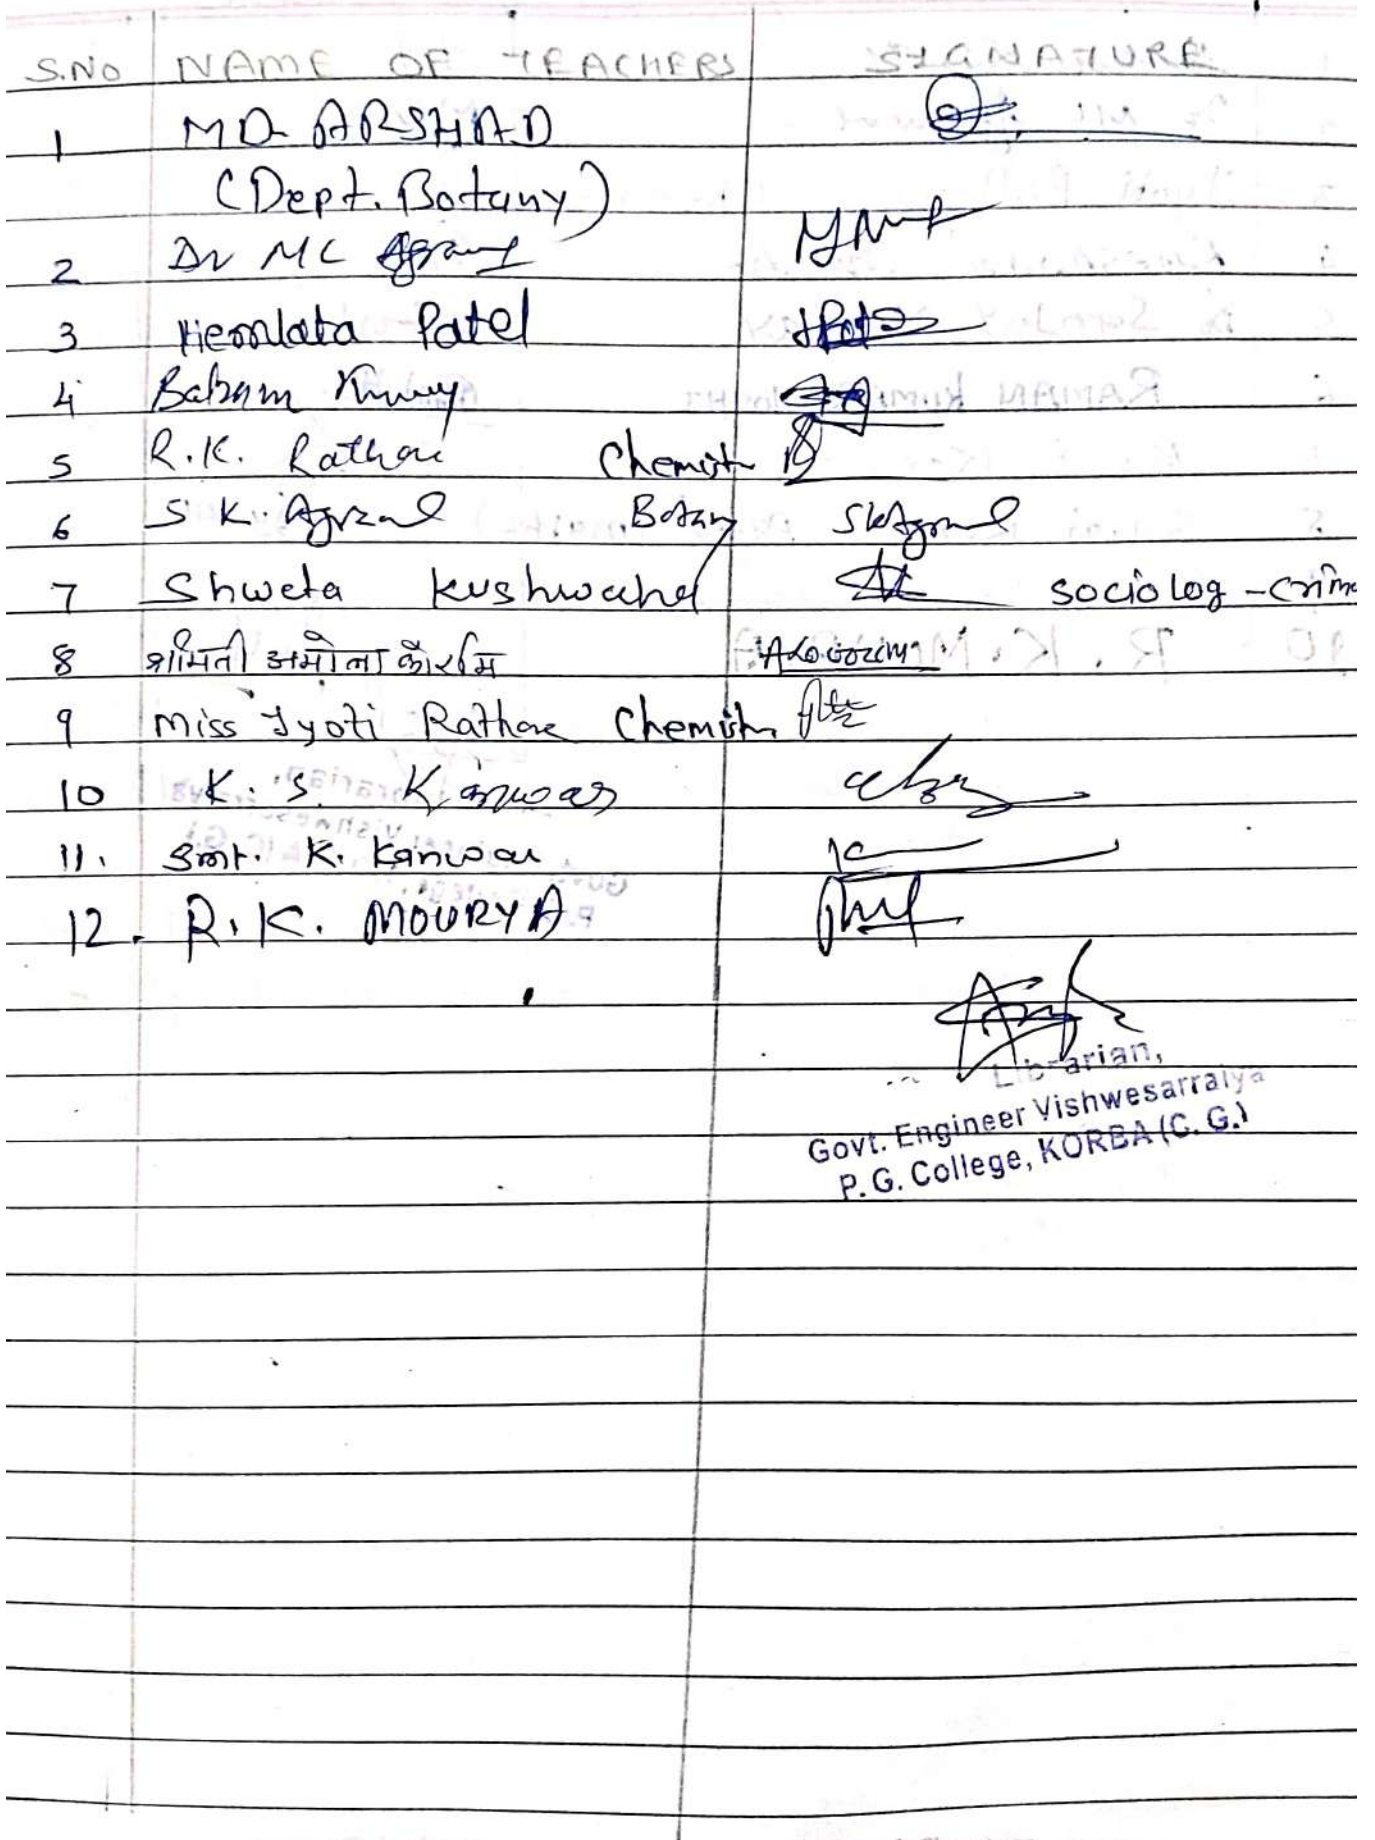 S.NO NAME OF TEACHERS SIGNATURE
1 MD ARSHAD
(Dept. Botany)
2 Dr MC
3 Hemlata Patel
4
5 R.K. Rathore Chemist
6 S K. Agrawal Botany SKAgrawal
7 Shweta Kushwaha sociolog - crime
8 श्रीमति अमोला कोर्राम
9 Miss Jyoti Rathore Chemist
10 K. S. Kanwar
11. Smt. K. Kanwar
12. R. K. MOURYA
Librarian,
Govt. Engineer Vishwesarraiya
P. G. College, KORBA (C. G.)